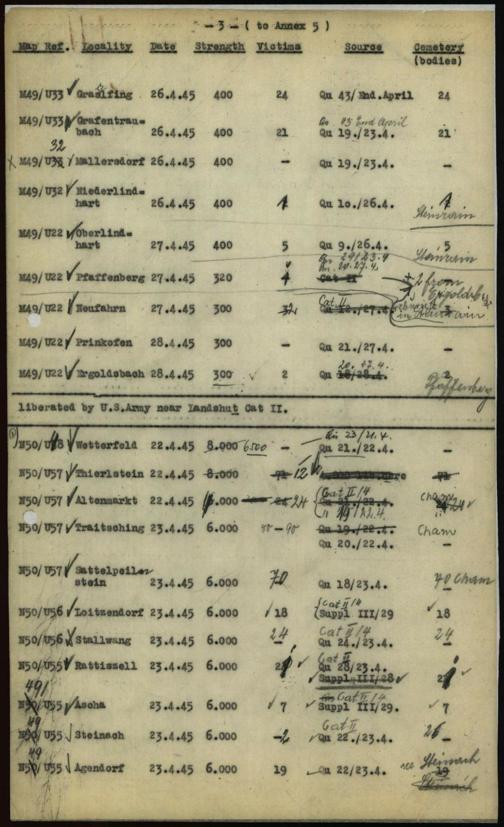 - 3 - ( to Annex 5 )
Map Ref. Locality Date Strength Victims Source Cemetery
(bodies)
M49/U33 Graslfing 26.4.45 400 24 Qu 43/End.April 24
Qu 43 End April
M49/U33 Grafentrau=
bach 26.4.45 400 21 Qu 19./23.4. 21
32
M49/U33 Mallersdorf 26.4.45 400 - Qu 19./23.4. -
M49/U32 Niederlind=
hart 26.4.45 400 1 Qu 10./26.4. 1
Steinrain
M49/U22 Oberlind=
hart 27.4.45 400 5 Qu 9./26.4. 5
Steinrain
M49/U22 Pfaffenberg 27.4.45 320 4 Cat II
2 from
Ergoldsb.
M49/U22 Neufahrn 27.4.45 300 32 Cat II Qu 12./27.4.
in
M49/U22 Prinkofen 28.4.45 300 - Qu 21./27.4. -
M49/U22 Ergoldsbach 28.4.45 300 2 Qu 18/28.4.
20. 27.4.
Pfaffenberg
liberated by U.S.Army near Landshut Cat II.
Qu 23/21.4.
N50/U48 Wetterfeld 22.4.45 8.000 6500 - Qu 21./22.4. -
N50/U57 Thierlstein 22.4.45 8.000 71 12 71
N50/U57 Altenmarkt 22.4.45 6.000 24 24 Cat II/4
Cham
N50/U57 Traitsching 23.4.45 6.000 80 - 90 Qu 19./22.4. Cham
Qu 20./22.4. -
N50/U57 Sattelpeiln
stein 23.4.45 6.000 70 Qu 18/23.4. 70 Cham
N50/U56 Loitzendorf 23.4.45 6.000 18 Cat II/4
Suppl III/29 18
N50/U56 Stallwang 23.4.45 6.000 24 Cat II/4 24
- Qu 24./23.4. -
N50/U55 Rattiszell 23.4.45 6.000 Cat II
Qu 28/23.4.
Suppl III/28
491
N50/U55 Ascha 23.4.45 6.000 7 Cat II/4
Suppl III/29. 7
49
N50/U55 Steinach 23.4.45 6.000 -2 Cat II
Qu 22./23.4. 26 -
49
N50/U55 Agendorf 23.4.45 6.000 19 Qu 22/23.4. see Steinach
19
Steinach